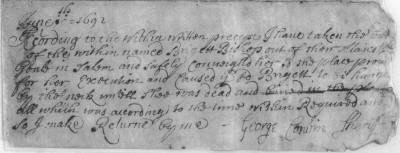 June 10th - 1692
Acording to the Within Written precept I have taken the body
of the within named Brigett Bishop out of their Majesties
Goale in Salem and Safely Conveighd her to the place provided
for her Execution and Caused y sd Brigett to be hanged
by the neck untill Shee was dead and buried in the
all which was according to the time within Required and
So I make Returne by me
George Corwin Sheriff